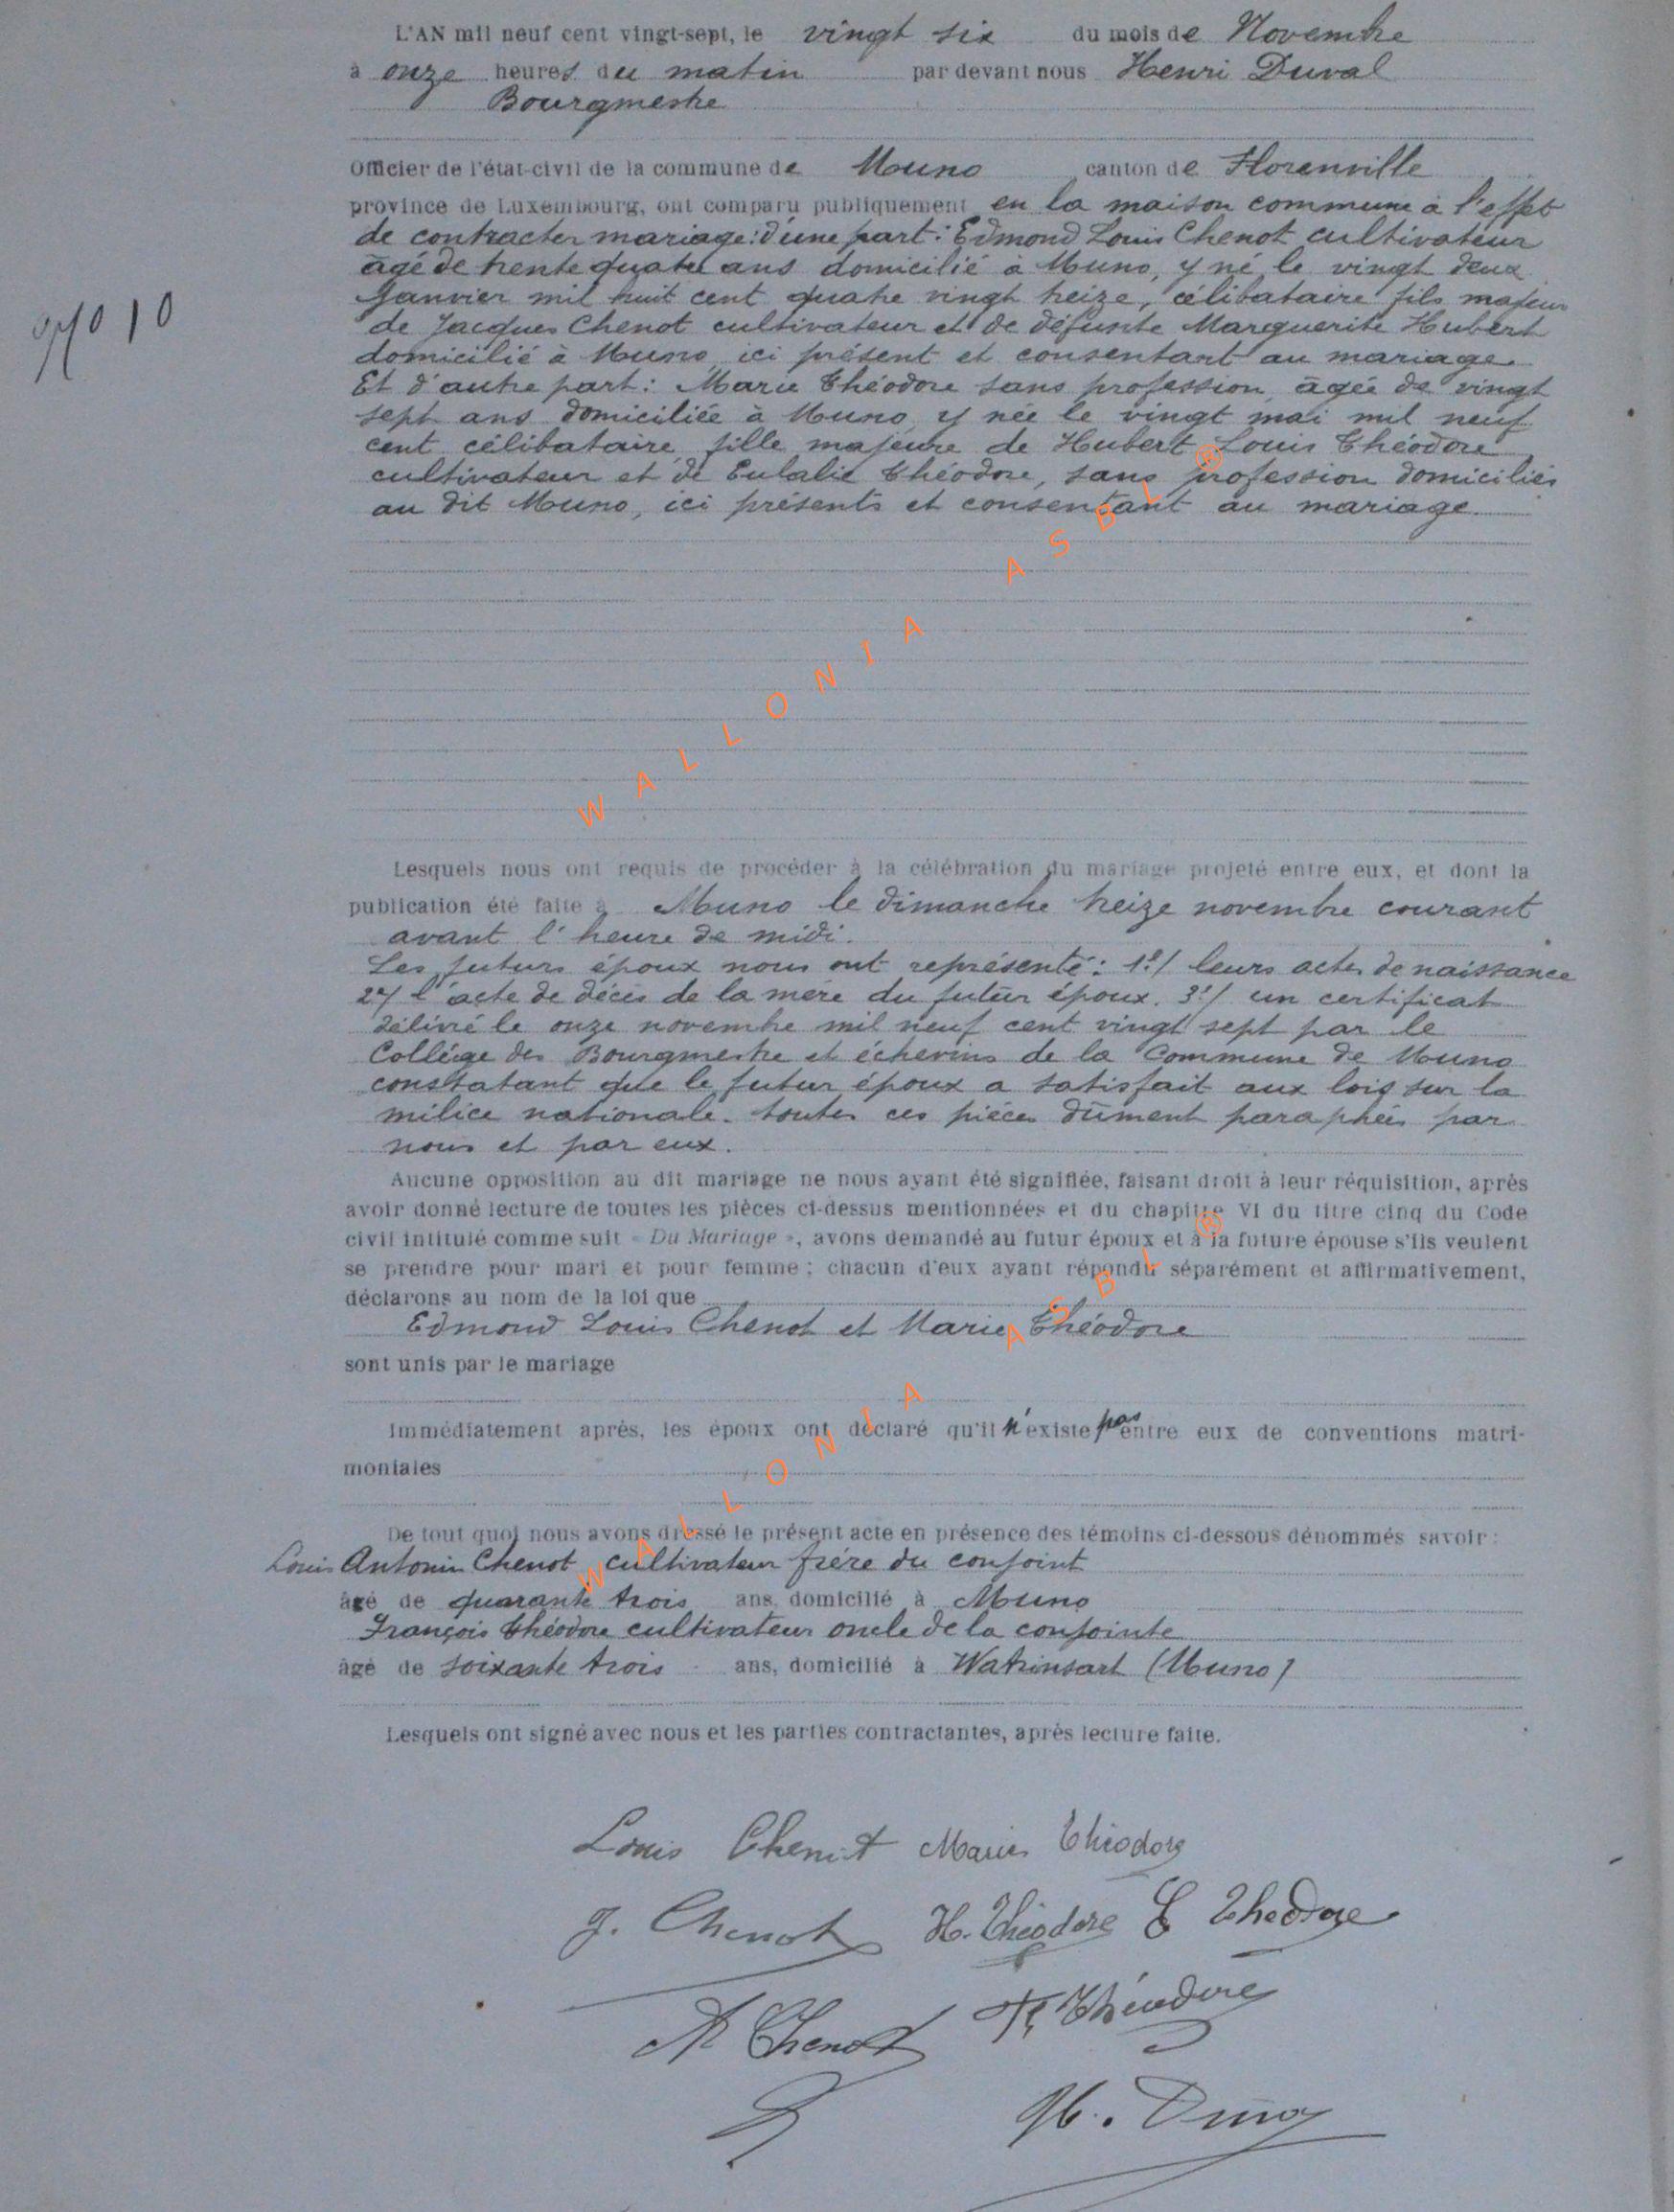 L'AN mil neuf cent vingt-sept, le vingt six du mois de Novembre
à onze heures du matin par devant nous Henri Duval
Bourgmestre
Officier de l'état-civil de la commune de Muno canton de Florenville
province de Luxembourg, ont comparu publiquement en la maison commune à l'effet
de contracter mariage: d'une part: Edmond Louis Chenot cultivateur
âgé de trente quatre ans domicilié à Muno, y né le vingt deux
Janvier mil huit cent quatre vingt treize, célibataire fils majeur
de Jacques Chenot cultivateur et de défunte Marguerite Hubert
domicilié à Muno, ici présent et consentant au mariage.
Et d'autre part: Marie Théodore sans profession, âgée de vingt
sept ans domiciliée à Muno, y née le vingt mai mil neuf
cent célibataire, fille majeure de Hubert Louis Théodore
cultivateur et de Eulalie Théodore, sans profession domiciliés
au dit Muno, ici présents et consentant au mariage.
WALLONIA ASBL ®
N° 10
Lesquels nous ont requis de procéder à la célébration du mariage projeté entre eux, et dont la
publication été faite à Muno le dimanche treize novembre courant
avant l'heure de midi.
Les futurs époux nous ont représenté: 1°/ leurs actes de naissance
2°/ l'acte de décès de la mère du futur époux. 3°/ un certificat
délivré le onze novembre mil neuf cent vingt sept par le
Collège des Bourgmestre et échevins de la Commune de Muno
constatant que le futur époux a satisfait aux lois sur la
milice nationale. toutes ces pièces dûment paraphées par
nous et par eux.
Aucune opposition au dit mariage ne nous ayant été signifiée, faisant droit à leur réquisition, après
avoir donné lecture de toutes les pièces ci-dessus mentionnées et du chapitre VI du titre cinq du Code
civil intitulé comme suit « Du Mariage », avons demandé au futur époux et à la future épouse s'ils veulent
se prendre pour mari et pour femme; chacun d'eux ayant répondu séparément et affirmativement,
déclarons au nom de la loi que
Edmond Louis Chenot et Marie Théodore
sont unis par le mariage
Immédiatement après, les époux ont déclaré qu'il n'existe pas entre eux de conventions matri-
moniales
WALLONIA ASBL ®
De tout quoi nous avons dressé le présent acte en présence des témoins ci-dessous dénommés savoir:
Louis Antonin Chenot cultivateur frère du conjoint
âgé de quarante trois ans, domicilié à Muno
François Théodore cultivateur oncle de la conjointe
âgé de soixante trois ans, domicilié à Watrinsart (Muno)
Lesquels ont signé avec nous et les parties contractantes, après lecture faite.
Louis Chenot Marie Théodore
J. Chenot H. Théodore E Theodore
A Chenot Fç Théodore
H. Duval